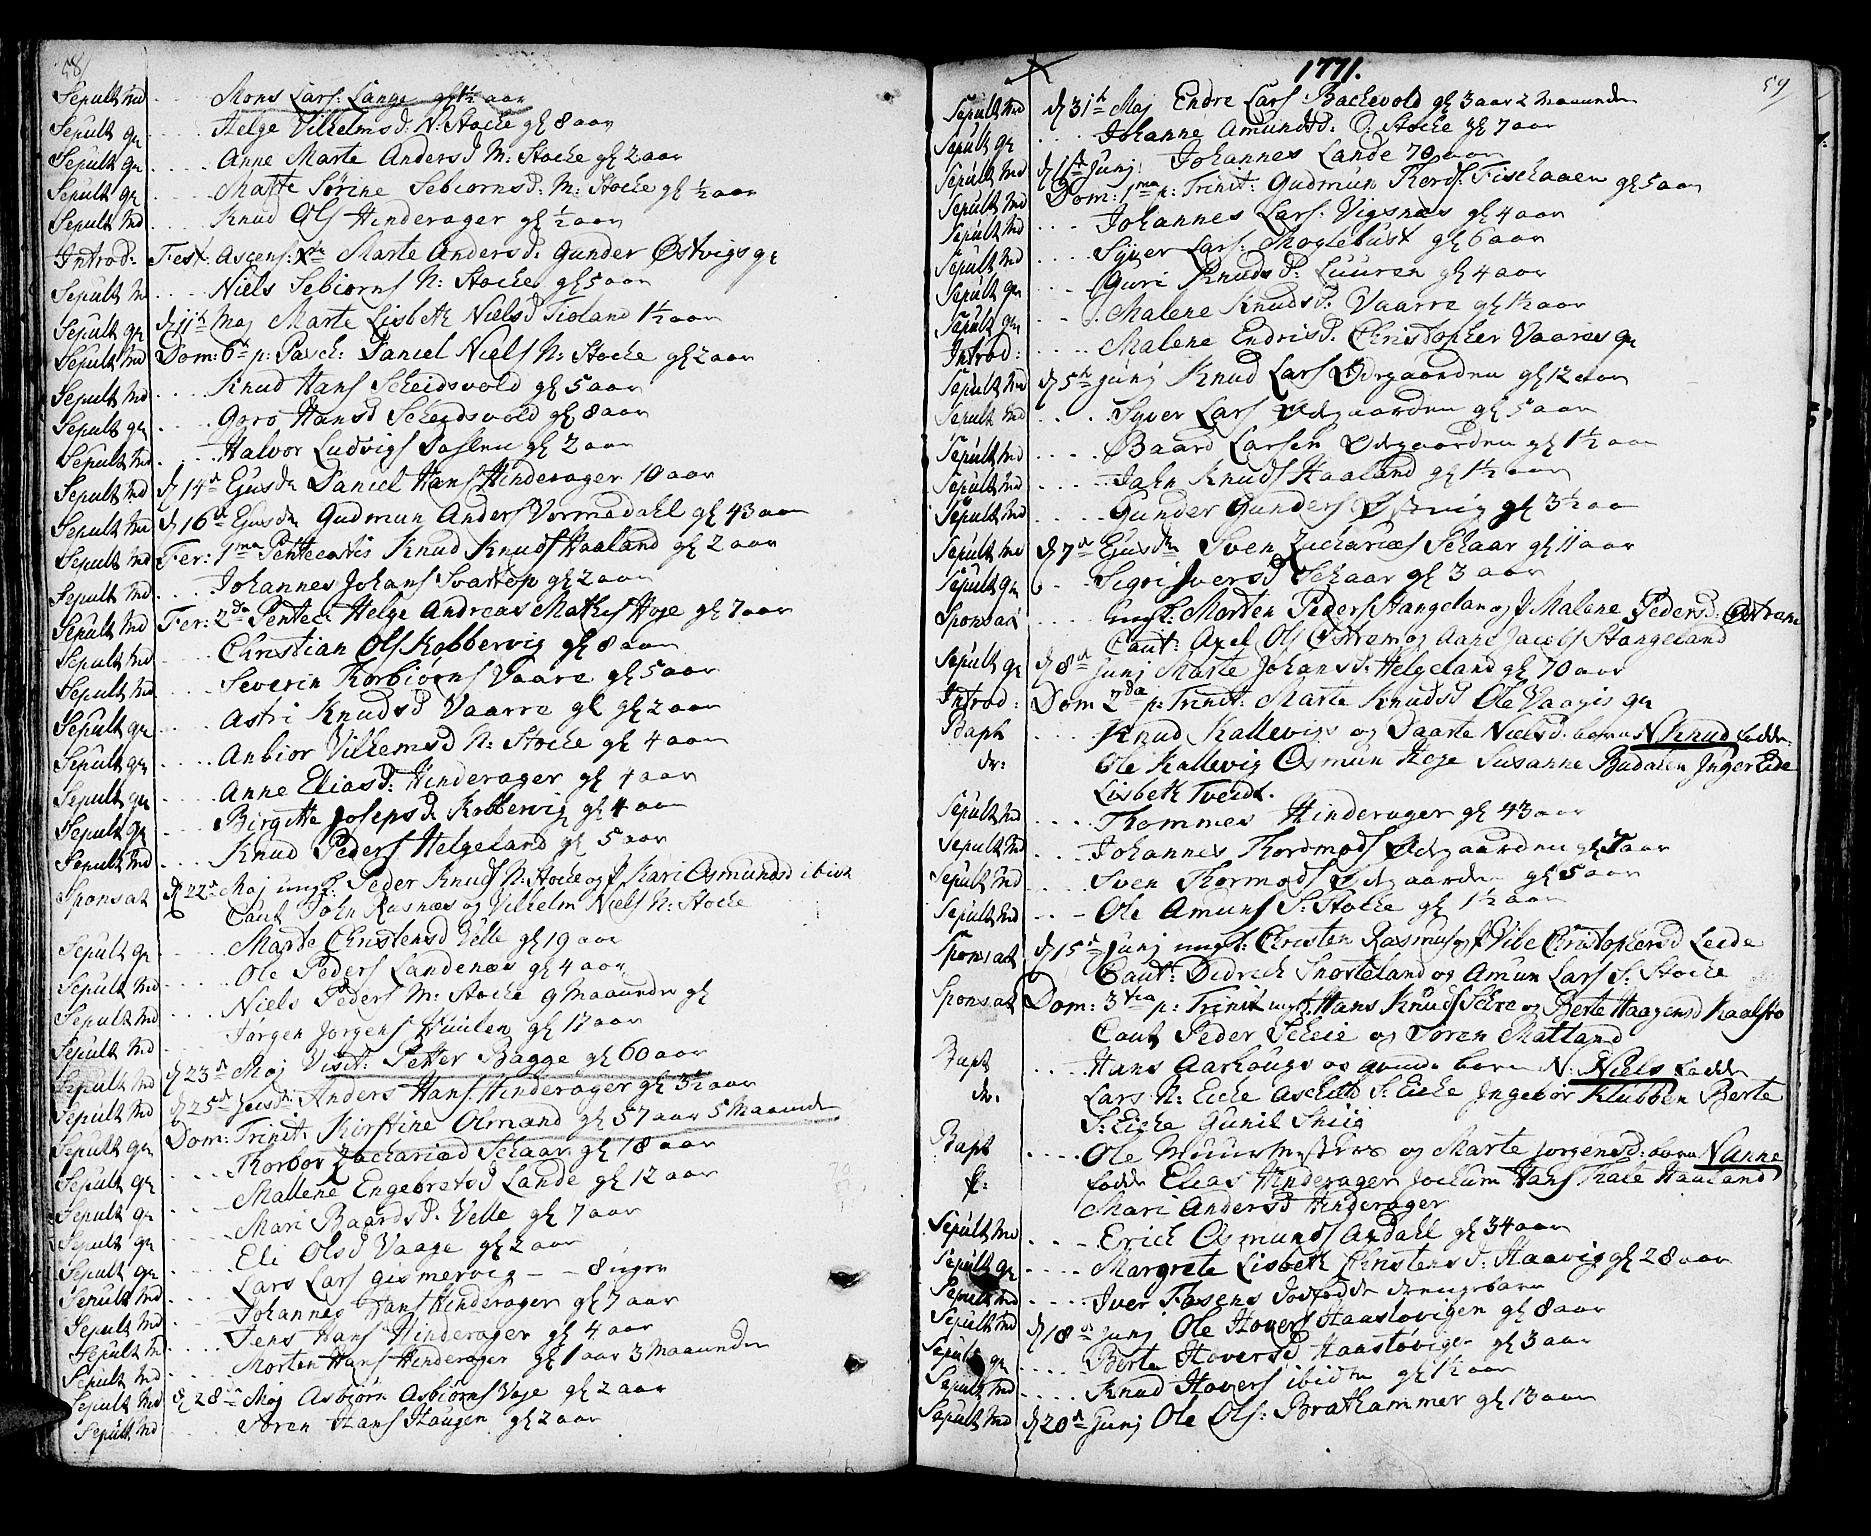 58
Sepult Md .... Mons Lars: Lange gl 1½ aar
Sepult qv .... Helge Vilhelmsd: N: Stoche gl 8 aar
Sepult qv .... Anne Marte Andersd M: Stoche gl 2 aar
Sepult qv .... Matte Sørine Sebiornsd: M: Stoche gl ½ aar
Sepult Md .... Knud Ols Hinderager gl ½ aar
Introd: Fest: Ascens: Xti Marte Andersd. Gunder Østvigs qv
Sepult Md .... Niels Sebiorns N: Stoche gl 5 aar
Sepult qv d 11te Maj Marte Lisbeth Nielsd Fioland 1½ aar
Sepult Md Dom: 6te p: Pasch: Daniel Niels N: Stoche gl 2 aar
Sepult Md .... Knud Hans Scheidsvold gl 5 aar
Sepult qv .... Goro Hansd Scheidsvold gl 8 aar
Sepult Md .... Halvor Ludvigs gl 2 aar
Sepult Md d 14de Ejusdm Daniel Hans Hinderager 10 aar
Sepult Md d 16de Ejusdm Gudmun Anders Vormedahl gl 43 aar
Sepult Md Fer: 1ma Pentecostis Knud Knuds Haaland gl 2 aar
Sepult Md .... Johannes Johans Svartop gl 2 aar
Sepult Md Fer: 2da Pentec: Helge Andreas Mathis Høje gl 7 aar
Sepult Md .... Christian Ols Kobbervig gl 8 aar
Sepult Md .... Severin Thorbiørns Vaare gl 5 aar
Sepult qv .... Astri Knudsd Vaarre gl gl 2 aar
Sepult qv .... Anbior Vilhemsd N: Stoche gl 4 aar
Sepult qv .... Anne Eliasd: Hinderager gl 4 aar
Sepult qv .... Birgitte Josepsd Kobbervig gl 4 aar
Sepult Md .... Knud Peders Helgeland gl 5 aar
Sponsat d 22de Maj ungk: Peder Knuds N: Stoche og P Kari Osmundsd ibid
Caut John Rasnæs og Vilhelm Niels N: Stoche
Sepult qv .... Marte Christensd Velle gl 19 aar
Sepult Md .... Ole Peders Landenæs gl 4 aar
Sepult Md .... Niels Peders M: Stoche 9 Maaneder gl
Sepult Md .... Jørgen Jørgens gl 17 aar
Sepult Md d 23de Maj Visit: Petter Bagge gl 60 aar
Sepult Md d 25de Anders Hans Hinderager gl 3½ aar
Sepult qv Dom: Trinit: Kirstine Olmand gl 57 aar 5 Maaneder
Sepult qv .... Thorbor Zachariæd Schaar gl 18 aar
Sepult qv .... Mallene Engebretsd Lande gl 12 aar
Sepult qv .... Mari Baardsd. Velle gl 7 aar
Sepult qv .... Eli Olsd Vaage gl 2 aar
Sepult Md .... Lars Lars Gismervig - - 8 uger
Sepult Md .... Johannes Hans Hinderager gl 7 aar
Sepult M .... Jens Hans Hinderager gl 4 aar
Sepult Md .... Morten Hans Hinderager gl 1 aar 3 Maaneder
Sepult Md d 28de Maj Asbiørn Asbiørns Voje gl 2 aar
Sepult Md .... Søren Hans Haugen gl 2 aar
1771.
59
Sepult Md d 31te Maj Endre Lars Bachevold gl 3 aar 2 Maaneder
Sepult qv .... Johanne Amundsd. S: Stoche gl 7 aar
Sepult Md d 1ste Junj Johannes Lande 70 aar
Sepult Md Dom: 1ma p: Trinit: Gudmun Thords: Fischaaen gl 5 aar
Sepult Md .... Johannes Lars: Vigsnæs gl 4 aar
Sepult Md .... Syver Lars: Moglebust gl 6 aar
Sepult qv .... Guri Knudsd. Luuren gl 4 aar
Sepult qv .... Malene Knudsd. Vaarre gl 1½ aar
Introd: .... Malene Endrisd. Christopher Vaares qv
Sepult Md d 5te Junj Knud Lars Ødegaarden gl 12 aar
Sepult Md .... Syver Lars Ødegaarden gl 5 aar
Sepult Md .... Baard Larsen Ødegaarden gl 1½ aar
Sepult Md .... Jahn Knuds Haaland gl 1½ aar
Sepult Md .... Gunder Gunders Østvig gl 3½ aar
Sepult Md d 7de Ejusdm Sven Zacharies Schaar gl 11 aar
Sepult qv .... Sigri Iversd Schaar gl 3 aar
Sponsat .... ungk: Morten Peders Stangelan og P Malene Pedersd: Østrem
Caut: Axel Ols Østrem og Aane Jacobs Stangeland
Sepult qv d 8de Junj Marte Johansd: Helgeland gl 70 aar
Introd: Dom 2da p: Trinit: Marte Knudsd Ole Vaagis qv
Bapt .... Knud Kallevigs og Daarte Nielsd. barn N Knud fadde.
dr: Ole Kallevig Osmun Høje Susanne Budalen Inger Eide
Lisbeth Tvedt.
Sepult Md .... Thommes Hinderager gl 43 aar
Sepult Md .... Johannes Thormods Ødegaarden gl 7 aar
Sepult Md .... Sven Thormods Ødegaarden gl 5 aar
Sepult Md .... Ole Amuns S: Stoche gl 1½ aar
Sponsat d 15de Junj ungk: Christen Rasmus og P Vibe Christophersd Leide
Caut: Didrech Snorteland og Amun Lars S: Stoche
Sponsat Dom: 3tia p: Trinit ungk: Hans Knuds Schre og Berte Haagensd Kaalsto
Caut Peder Scheie og Søren Matland
Bapt .... Hans Aarhougs og barn N: Niels fadde
dr. Lars N: Eiche Aschild S: Eiche Ingebor Klubben Berte
S: Eiche Gunil Shiig
Bapt .... Ole Muurmesters og Marte Jørgensd: barn N Anne
qv: fadde Elias Hinderager Jochum Hans Haaland
Mari Andersd Hinderager
Sepult Md .... Erich Osmunds Ardahl gl 34 aar
Sepult qv .... Margrete Lisbeth Christensd: Haavig gl 28 aar
Sepult Md .... Iver Fosens dødfødde drengebarn
Sepult Md d 18de Junj Ole Hovers Haastøvigen gl 8 aar
Sepult qv .... Berte Hoversd Haastøvigen gl 3 aar
Sepult Md .... Knud Hovers ibidem gl 1½ aar
Sepult Md d 20de Junj Ole Ols: Brathammer gl 13 aar